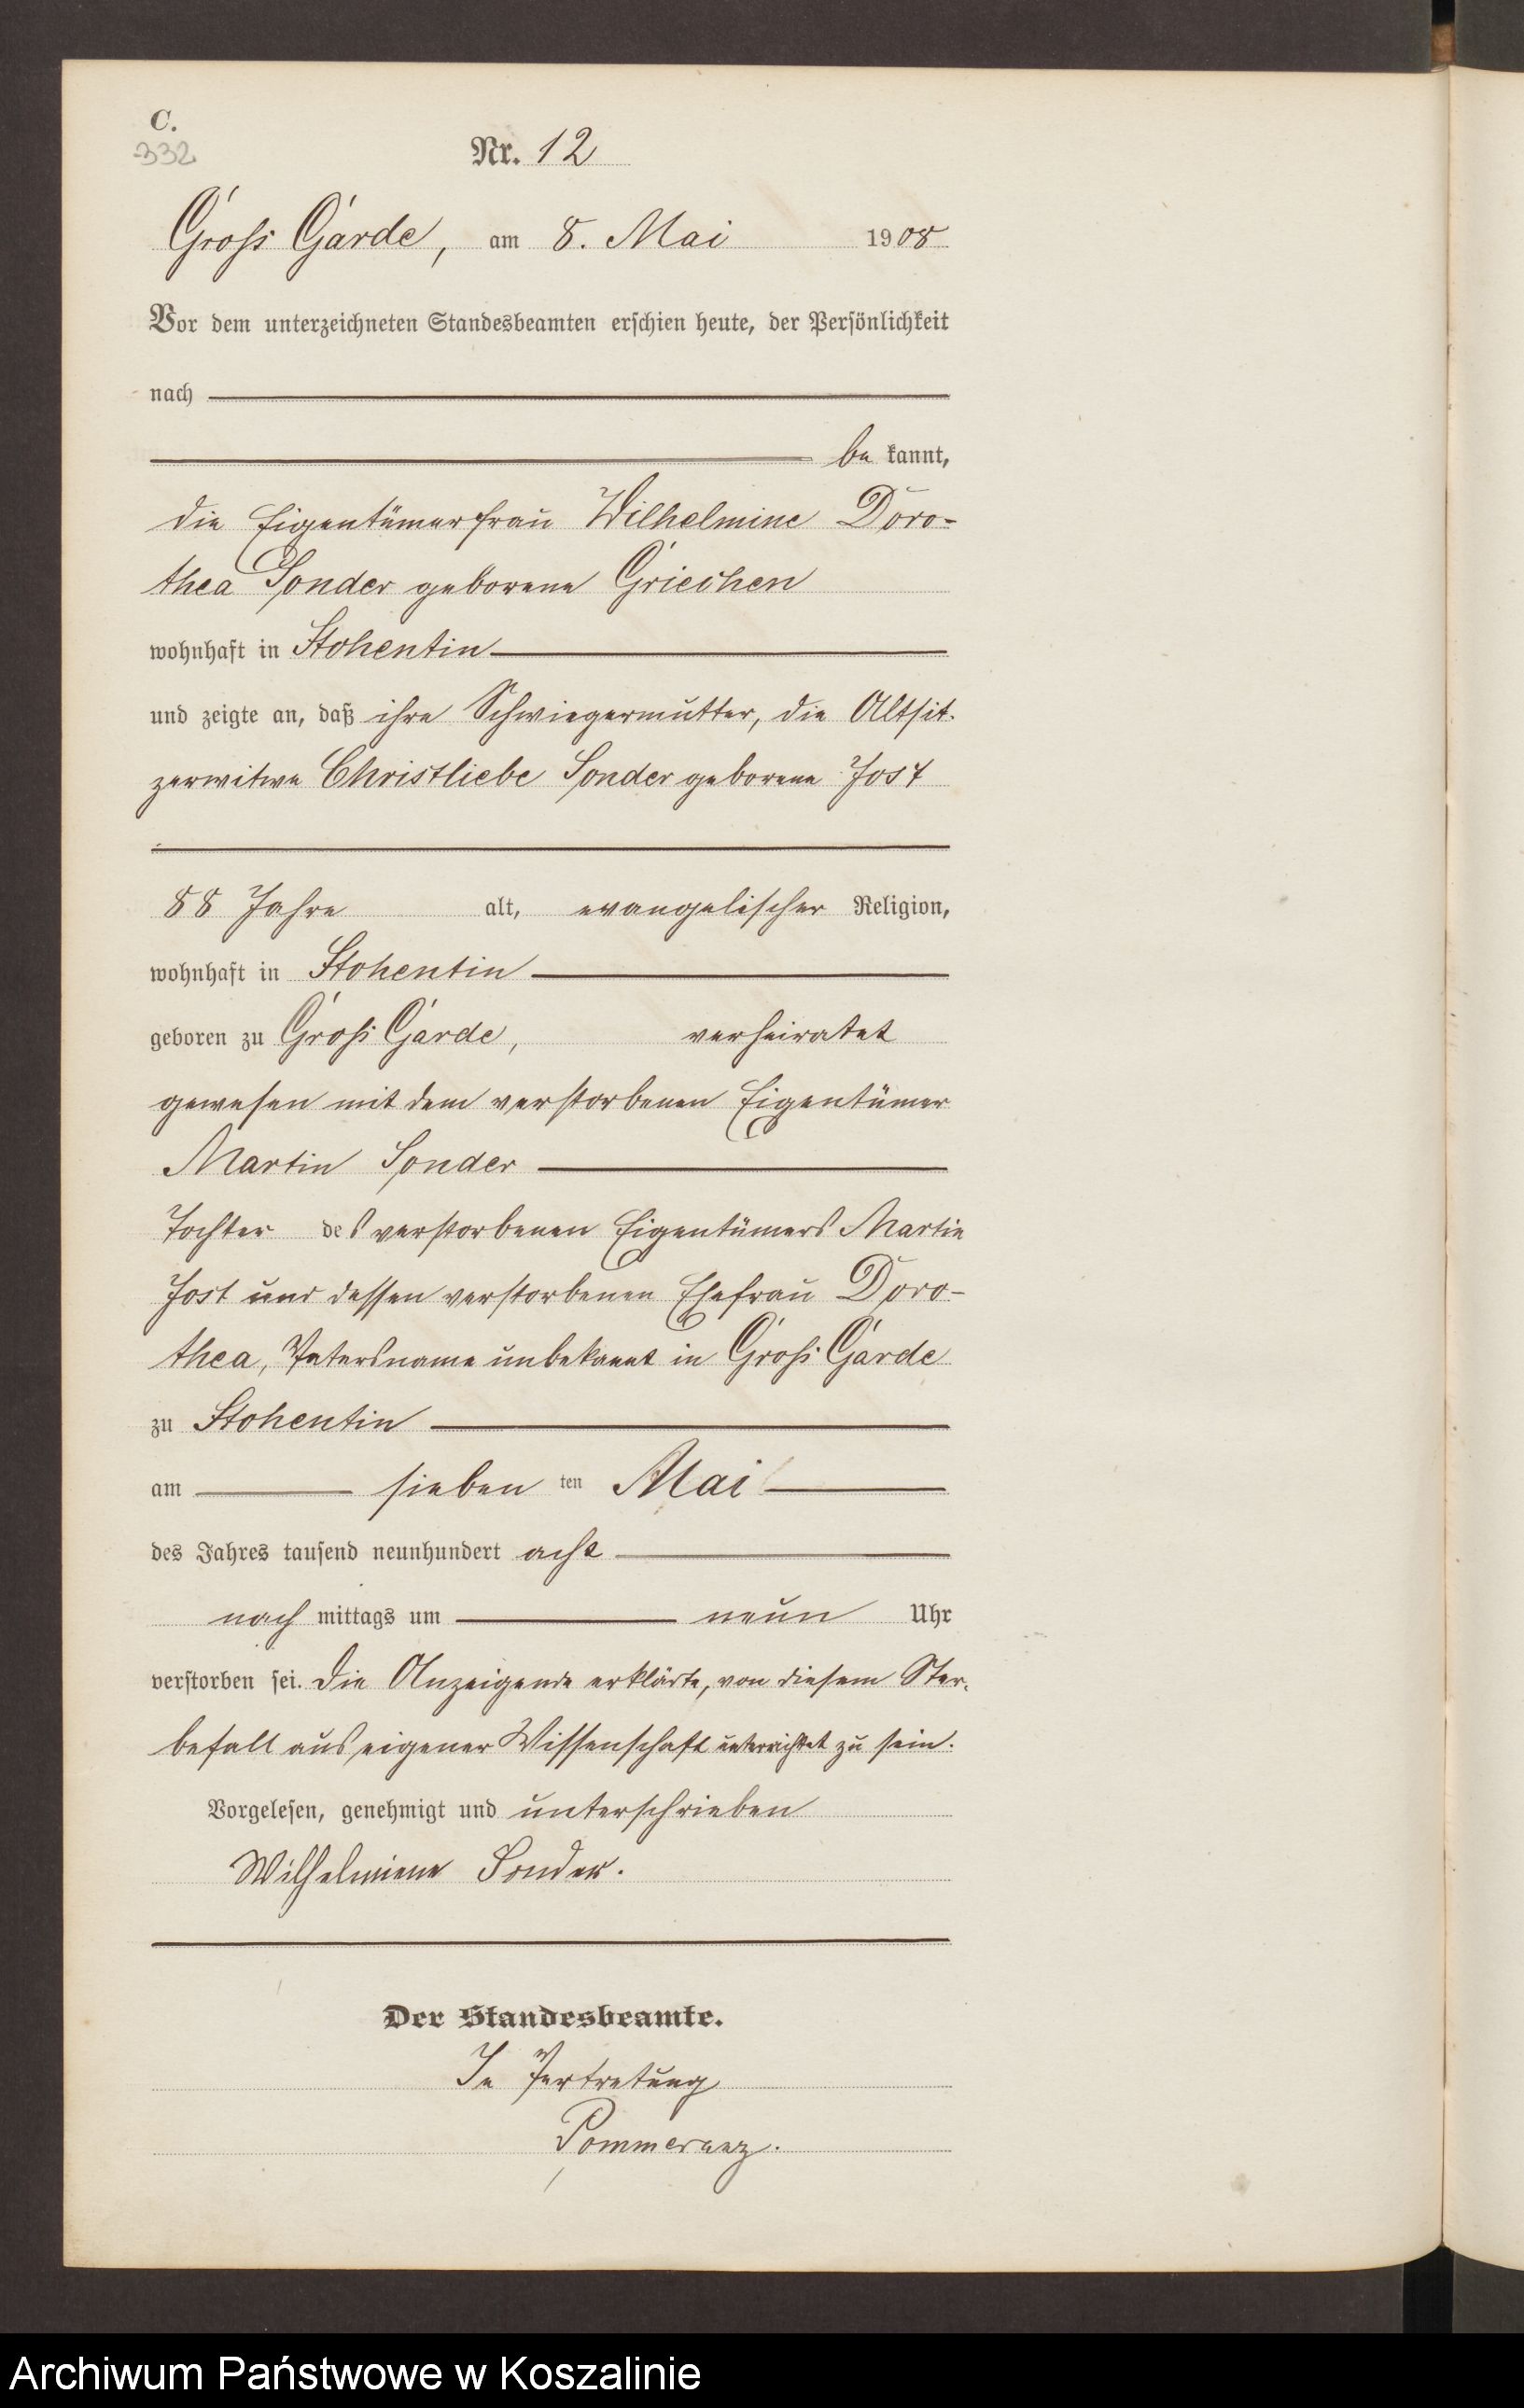 C.
332
Nr. 12
Groß Garde, am 8. Mai 1908
Vor dem unterzeichneten Standesbeamten erschien heute, der Persönlichkeit
nach
be kannt,
die Eigentümerfrau Wilhelmine Doro-
thea Sonder geborene Griechen
wohnhaft in Stohentin
und zeigte an, daß ihre Schwiegermutter, die Altsit-
zerwitwe Christliebe Sonder geborene Jost
88 Jahre alt, evangelischer Religion,
wohnhaft in Stohentin
geboren zu Groß Garde, verheiratet
gewesen mit dem verstorbenen Eigentümer
Martin Sonder
Tochter des verstorbenen Eigentümers Martin
Jost und dessen verstorbenen Ehefrau Doro-
thea, Vatersname unbekannt in Groß Garde
zu Stohentin
am sieben ten Mai
des Jahres tausend neunhundert acht
nach mittags um neun Uhr
verstorben sei. Die Anzeigende erklärte, von diesem Ster-
befall aus eigener Wissenschaft unterrichtet zu sein.
Vorgelesen, genehmigt und unterschrieben
Wilhelmiene Sonder.
Der Standesbeamte.
In Vertretung
Pommerenz.
Archiwum Państwowe w Koszalinie